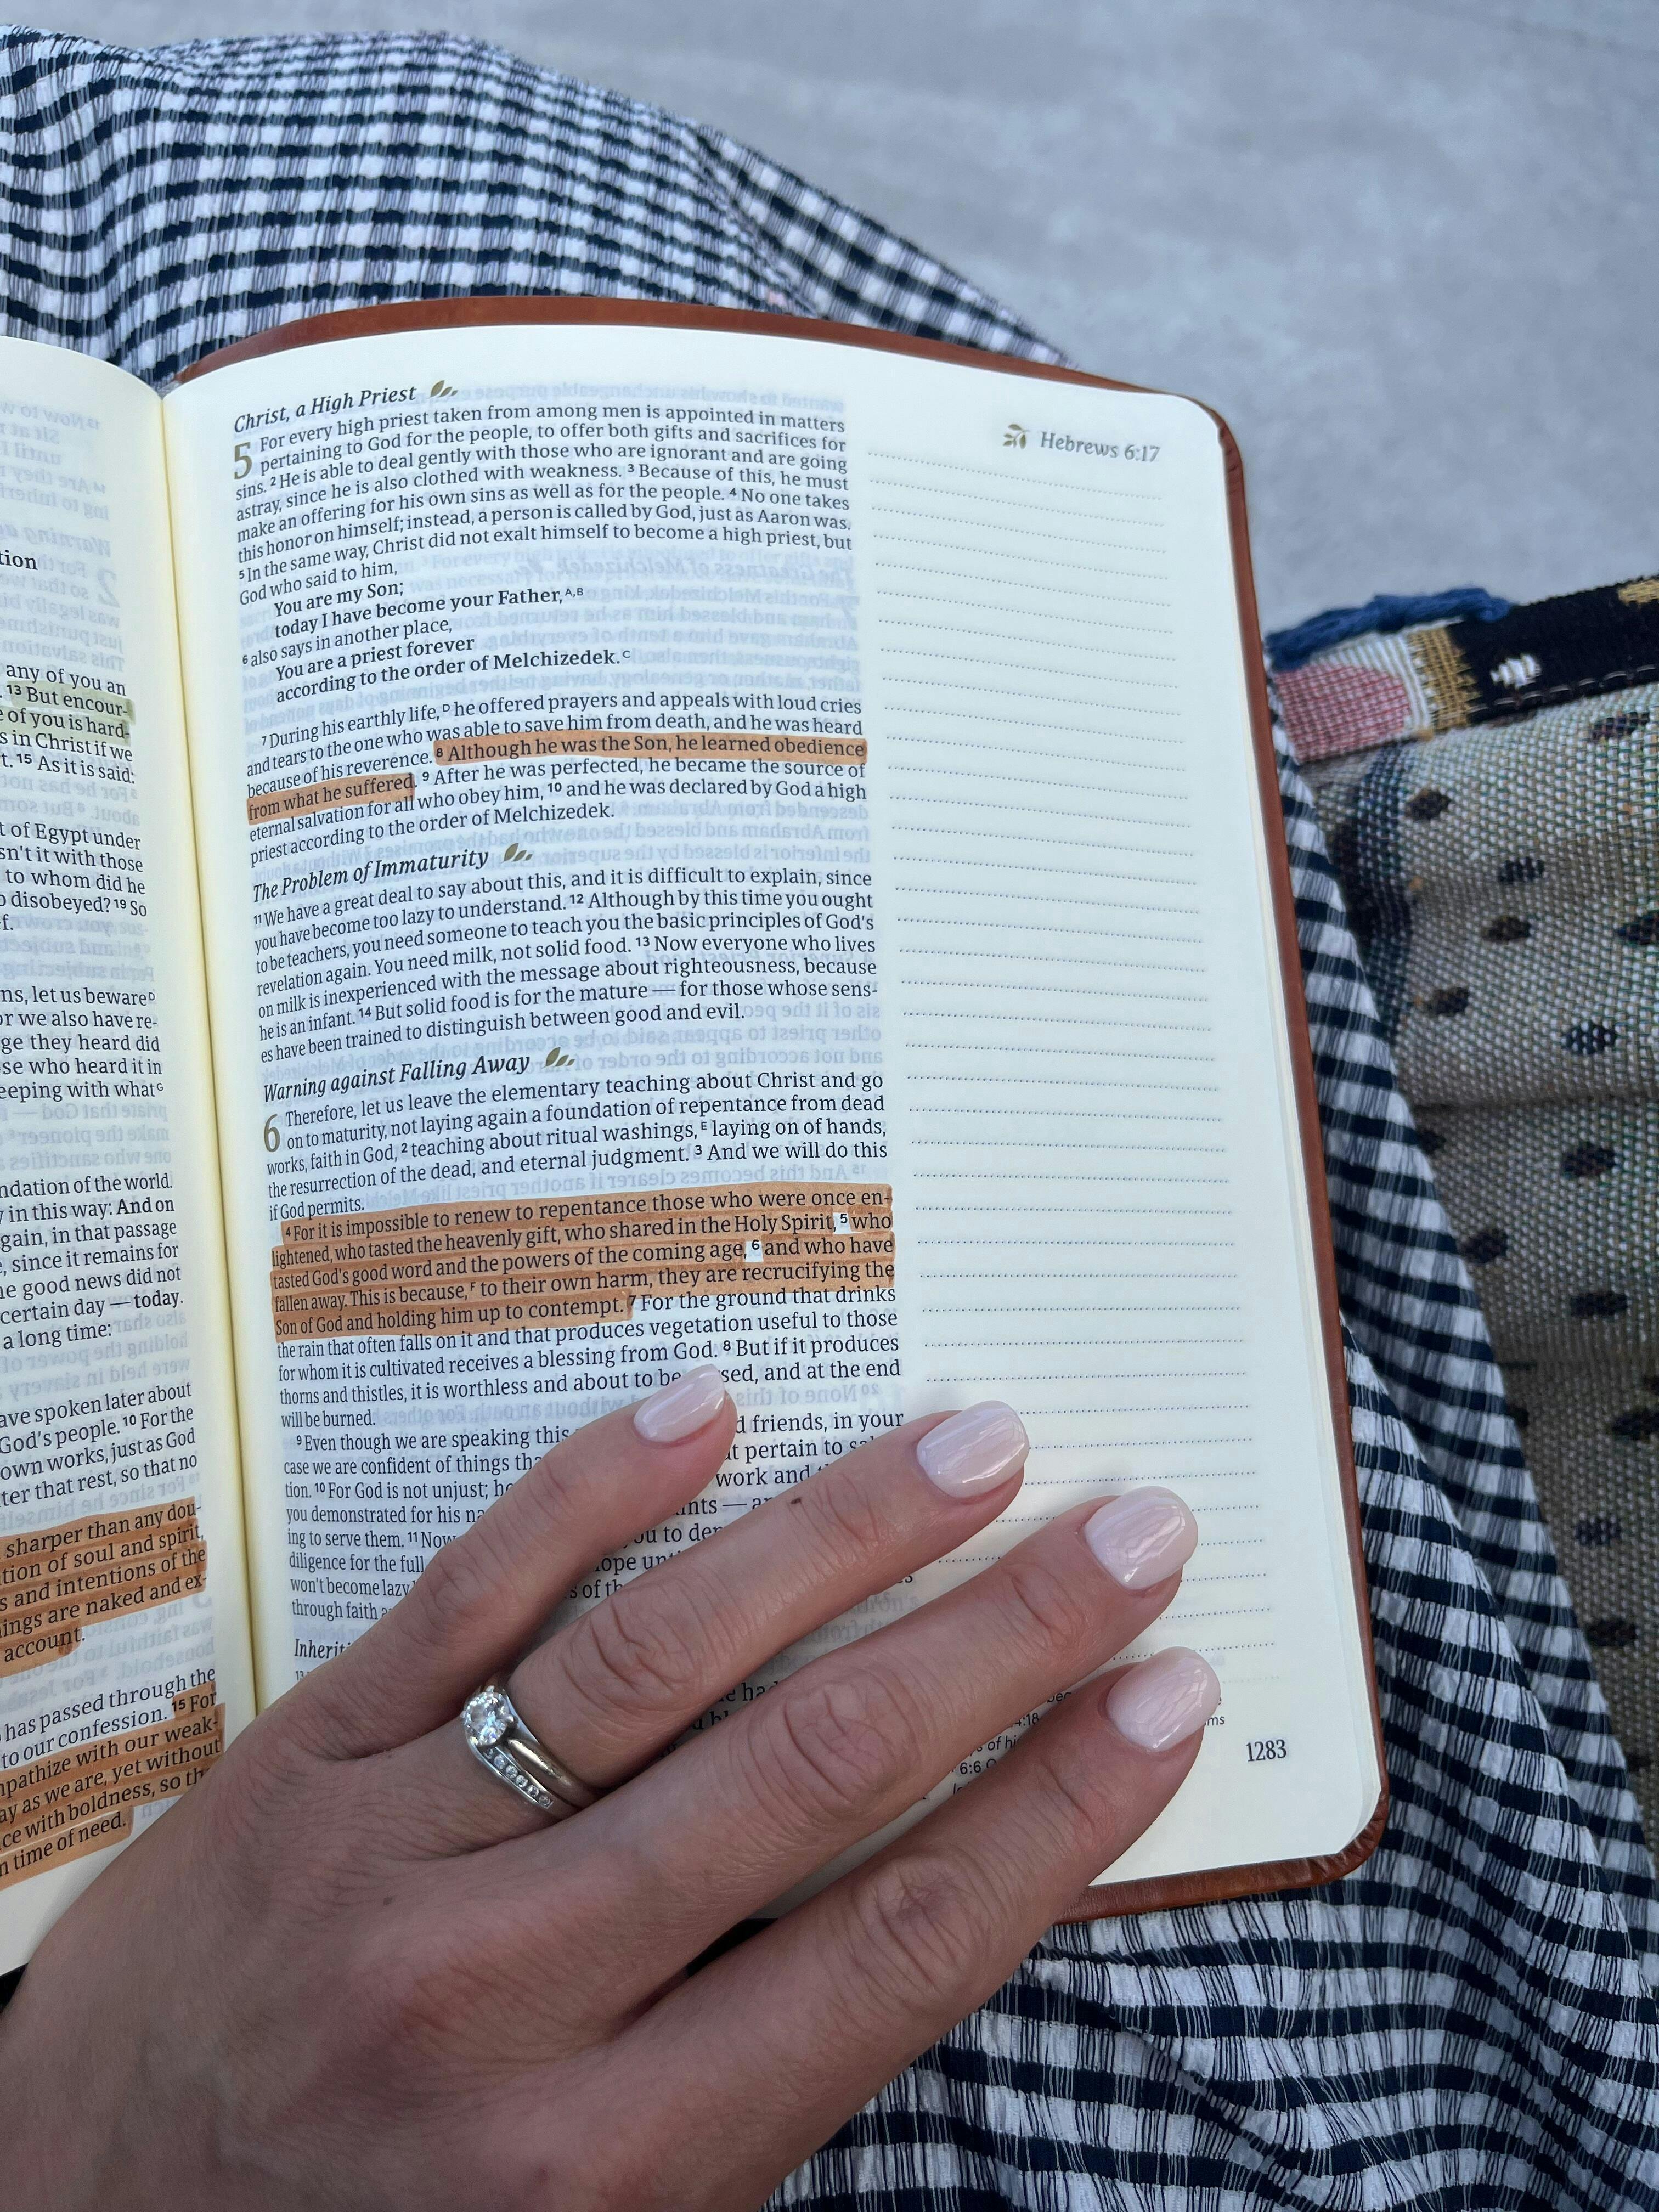 tion
any of you an
. 13 But encour-
e of you is hard-
s in Christ if we
t. 15 As it is said:
t of Egypt under
sn't it with those
to whom did he
o disobeyed? 19 So
f.
ns, let us beware D
or we also have re-
ge they heard did
se who heard it in
eeping with what G
ndation of the world.
y in this way: And on
gain, in that passage
, since it remains for
he good news did not
certain day — today.
a long time:
ave spoken later about
God's people. 10 For the
own works, just as God
ter that rest, so that no
sharper than any dou-
tion of soul and spirit,
s and intentions of the
ings are naked and ex-
account.
has passed through the
to our confession. 15 For
mpathize with our weak-
ay as we are, yet without
ce with boldness, so th
n time of need.
Hebrews 6:17
Christ, a High Priest
5 For every high priest taken from among men is appointed in matters
pertaining to God for the people, to offer both gifts and sacrifices for
sins. 2 He is able to deal gently with those who are ignorant and are going
astray, since he is also clothed with weakness. 3 Because of this, he must
make an offering for his own sins as well as for the people. 4 No one takes
this honor on himself; instead, a person is called by God, just as Aaron was.
5 In the same way, Christ did not exalt himself to become a high priest, but
God who said to him,
You are my Son;
today I have become your Father, A,B
6 also says in another place,
You are a priest forever
according to the order of Melchizedek. C
7 During his earthly life, D he offered prayers and appeals with loud cries
and tears to the one who was able to save him from death, and he was heard
because of his reverence. 8 Although he was the Son, he learned obedience
from what he suffered. 9 After he was perfected, he became the source of
eternal salvation for all who obey him, 10 and he was declared by God a high
priest according to the order of Melchizedek.
The Problem of Immaturity
11 We have a great deal to say about this, and it is difficult to explain, since
you have become too lazy to understand. 12 Although by this time you ought
to be teachers, you need someone to teach you the basic principles of God's
revelation again. You need milk, not solid food. 13 Now everyone who lives
on milk is inexperienced with the message about righteousness, because
he is an infant. 14 But solid food is for the mature — for those whose sens-
es have been trained to distinguish between good and evil.
Warning against Falling Away
6 Therefore, let us leave the elementary teaching about Christ and go
on to maturity, not laying again a foundation of repentance from dead
works, faith in God, 2 teaching about ritual washings, E laying on of hands,
the resurrection of the dead, and eternal judgment. 3 And we will do this
if God permits.
4 For it is impossible to renew to repentance those who were once en-
lightened, who tasted the heavenly gift, who shared in the Holy Spirit, 5 who
tasted God's good word and the powers of the coming age, 6 and who have
fallen away. This is because, F to their own harm, they are recrucifying the
Son of God and holding him up to contempt. 7 For the ground that drinks
the rain that often falls on it and that produces vegetation useful to those
for whom it is cultivated receives a blessing from God. 8 But if it produces
thorns and thistles, it is worthless and about to be sed, and at the end
will be burned.
9 Even though we are speaking this d friends, in your
case we are confident of things tha at pertain to sa
tion. 10 For God is not unjust; he work and
you demonstrated for his na ints — a
ing to serve them. 11 Now ou to de
diligence for the full ope un
won't become lazy s of th
through faith
Inherit
13
e ha
4:18
of hi
6:6
ms
1283